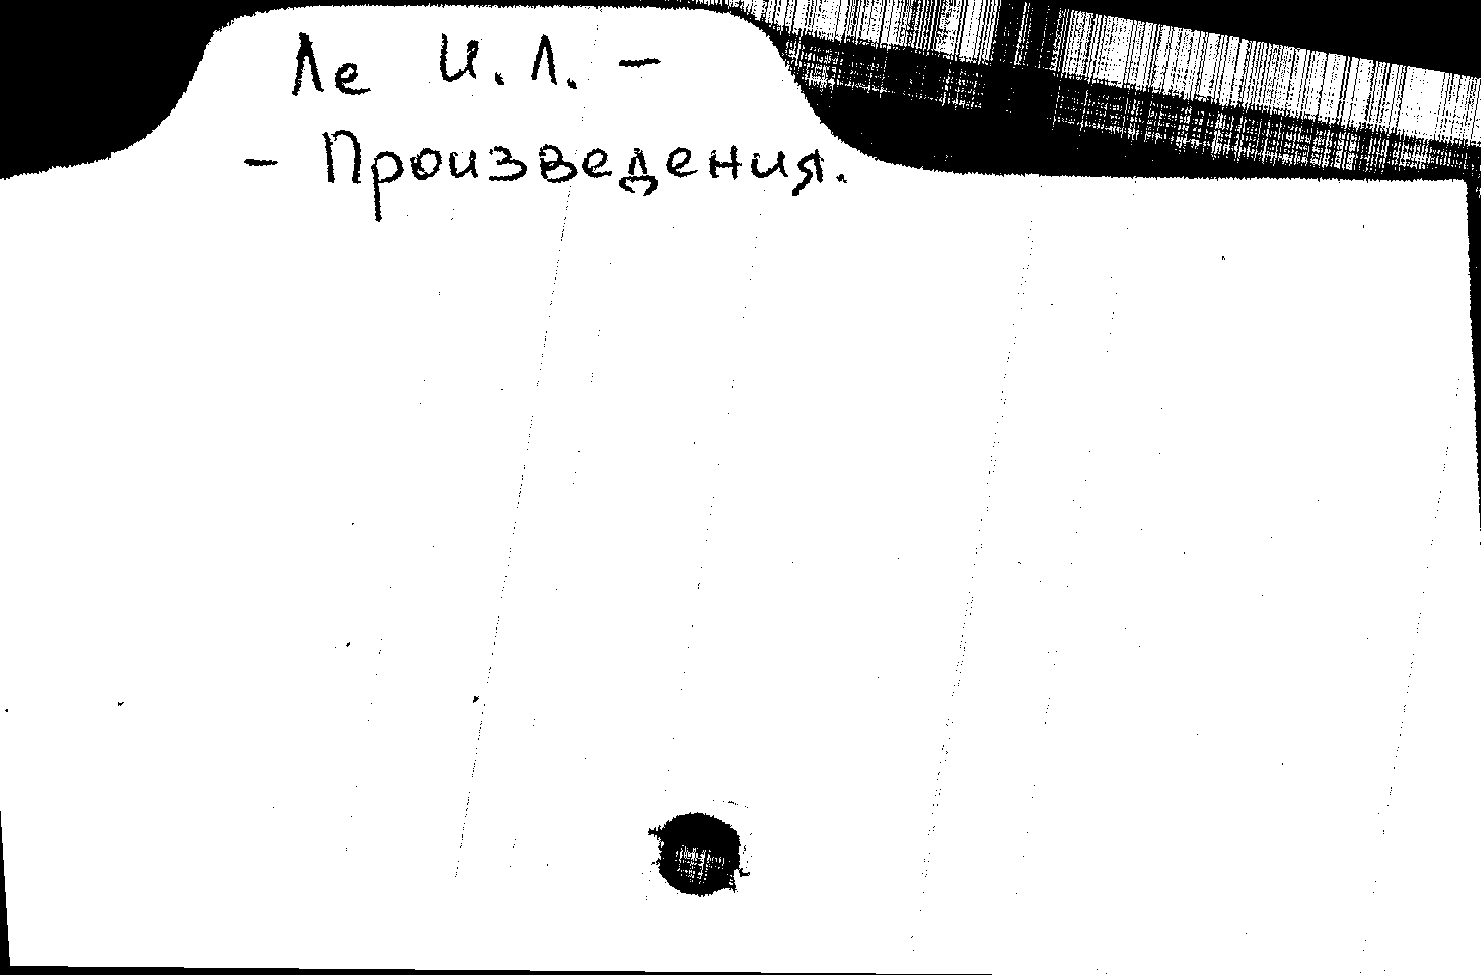 Ле И. Л. –
– Произведения.